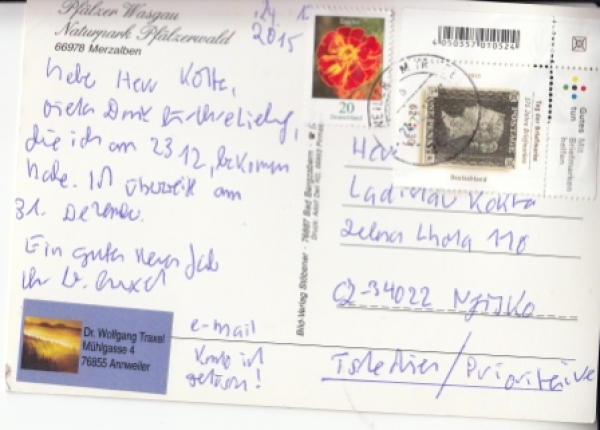 Pfälzer Wasgau
Naturpark Pfälzerwald
66978 Merzalben
24. 1.
2015
Liebe Herr Kokta,
vielen Dank für Ihre
die ich am 23.12. bekommen
habe. Ich am
31. Dezember.
Ein gutes neues Jahr
Ihr W. Traxel
Dr. Wolfgang Traxel
Mühlgasse 4
76855 Annweiler
e-mail
Karte ist
Bild-Verlag Stöbener · 76887 Bad Bergzabern
20
Deutschland
4 050357 010524
Tag der Briefmarke
175 Jahre Briefmarken
Deutschland
Gutes Mit
tun Briefmarken
helfen
Herr
Ladislav Kokta
Zelena Lhota 110
CZ-34022 Nýrsko
Tschechien/Prioritaire